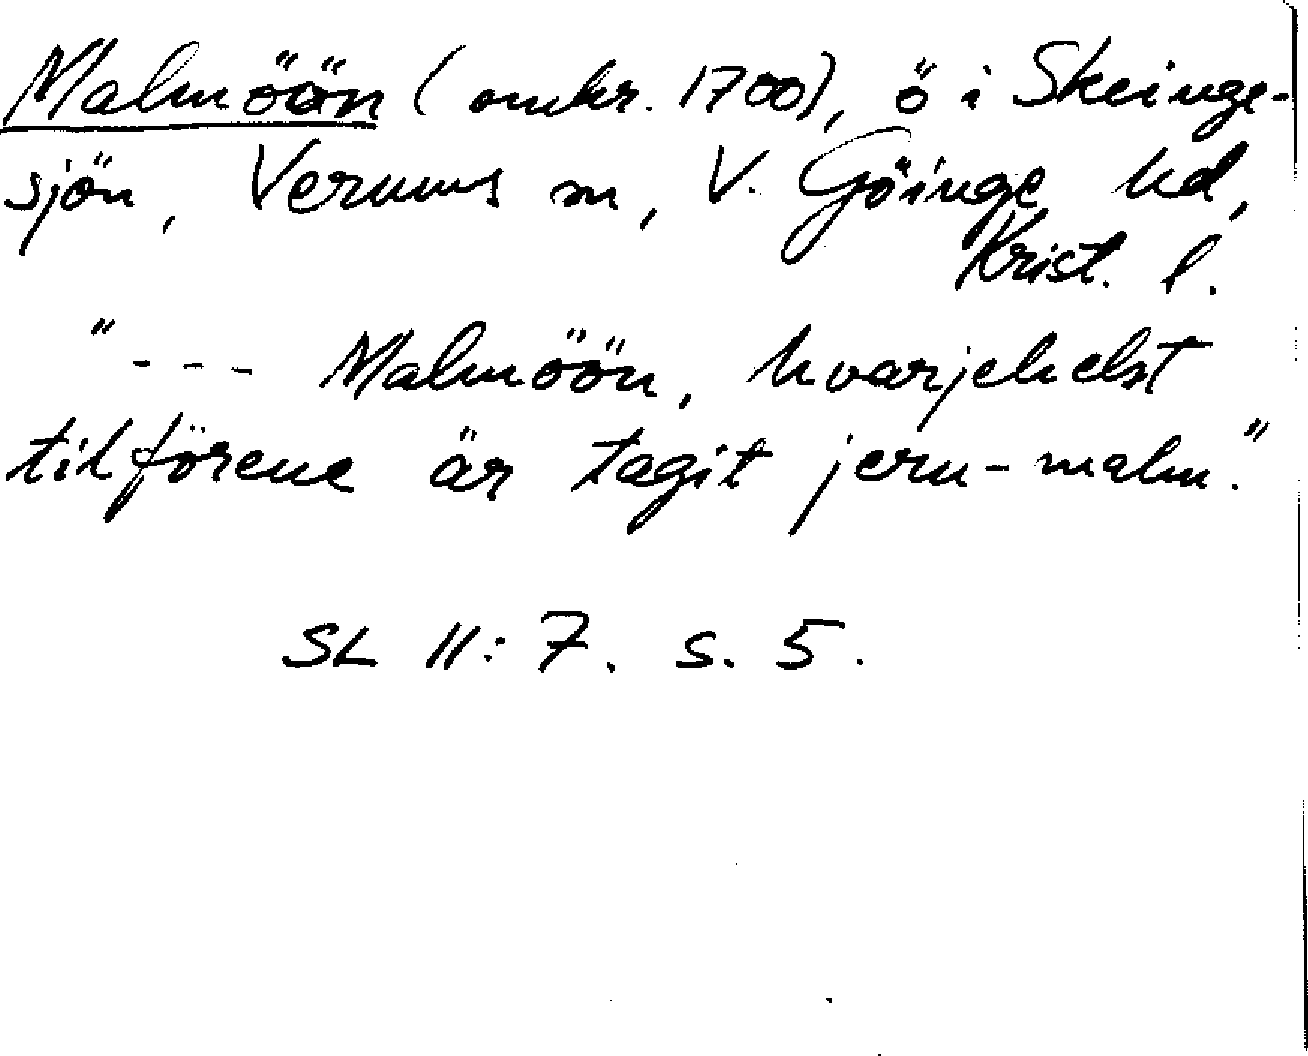 Malmöön (omkr. 1700), ö i Skeinge-
sjön, Verums sn, V. Göinge hd,
Krist. l.
"--- Malmöön, hvarjehelst
tilförene är tagit jern-malm."
SL II: 7. s. 5.